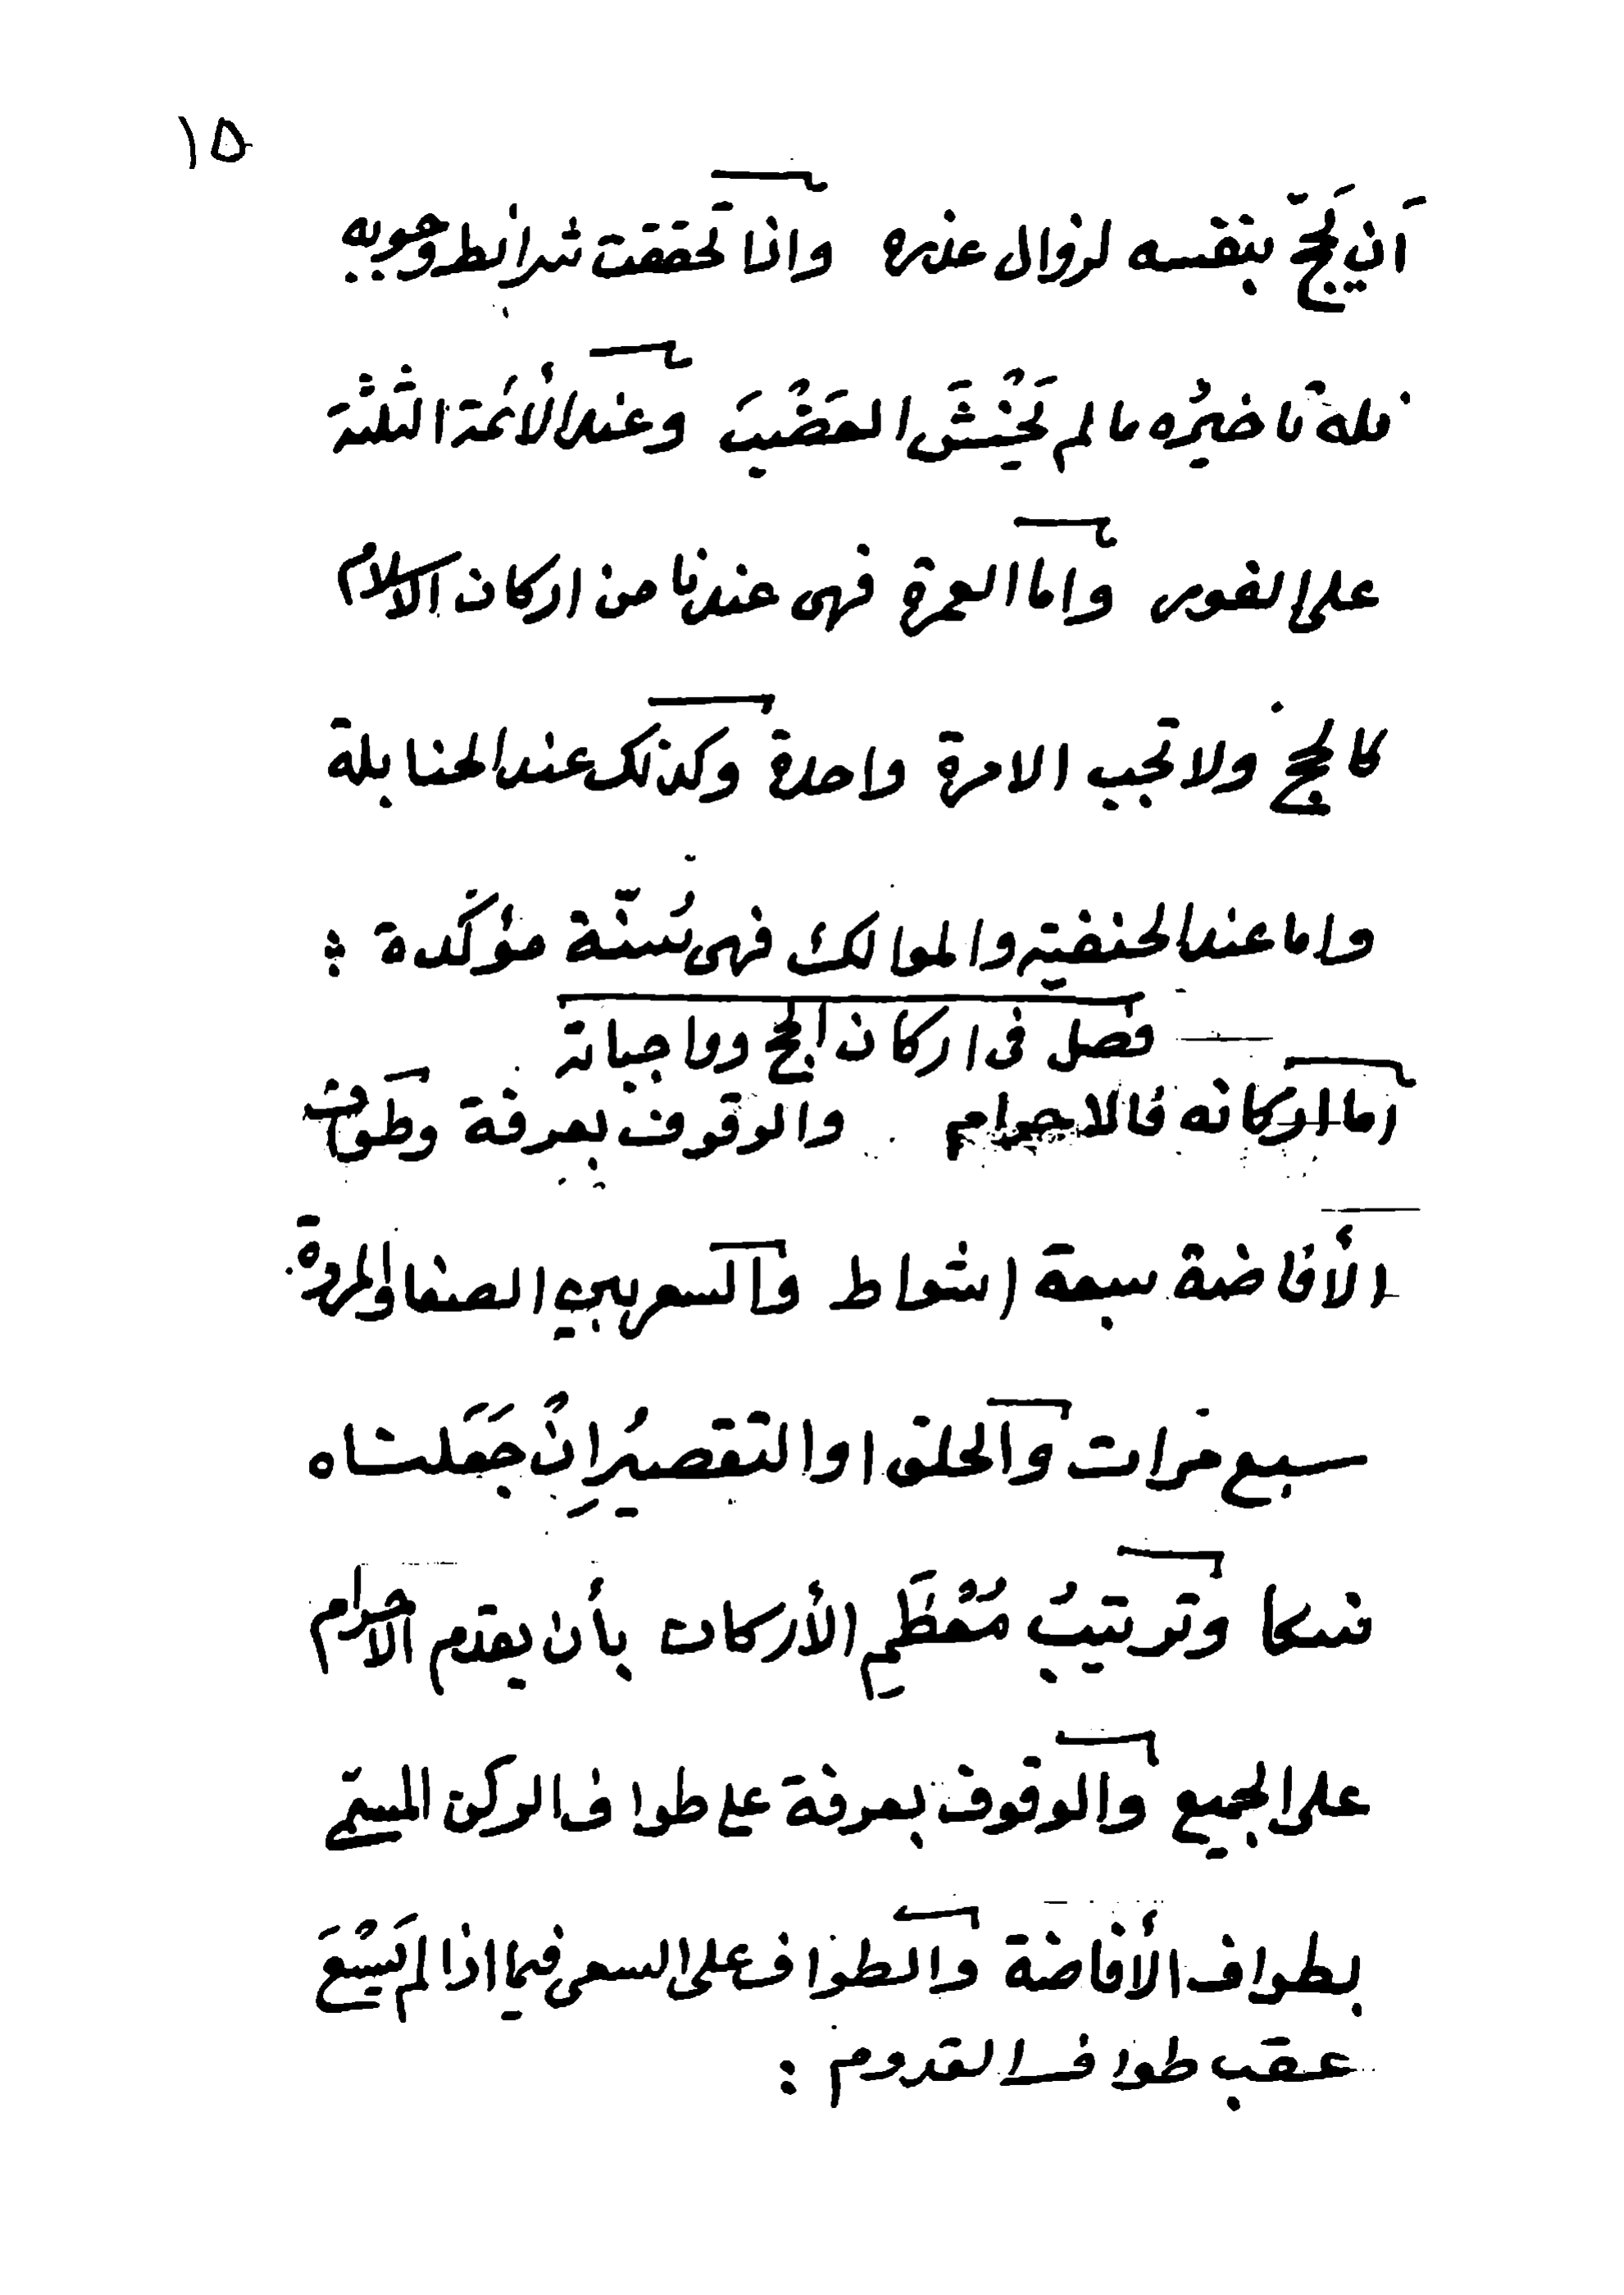 ١٥
أن يَحُجّ بنفسه لزوال عذره واذا تَحققت شرائط وجوبه
فله تاخيرُه ما لم يَخْشَ العَضْبَ وعند الأئمة الثلثة
على الفور واما العمرة فهى عندنا من اركان الاسلام
كالحج ولا تجب الا مرة واحدة وكذلك عند الحنابلة
واما عند الحنفيّة والموالك فهى سُنّة مؤكّدة :
فصل فى اركان الحج وواجباته
اما اركانه فالاحرام والوقوف بعرفة وطَواف
الأفاضة سبعة اشواط والسعى بين الصفا والمروة
سبع مَرات والحلق او التقصيرُ اِنْ جَعَلناه
نسكا وترتيبُ مُعْظَمِ الأركان بأن يقدم الاحرام
على الجميع والوقوف بعرفة على طواف الركن المسمّى
بطواف الأفاضة والطواف على السعى فيما اذا لم يَسْعَ
عقب طواف القدوم :